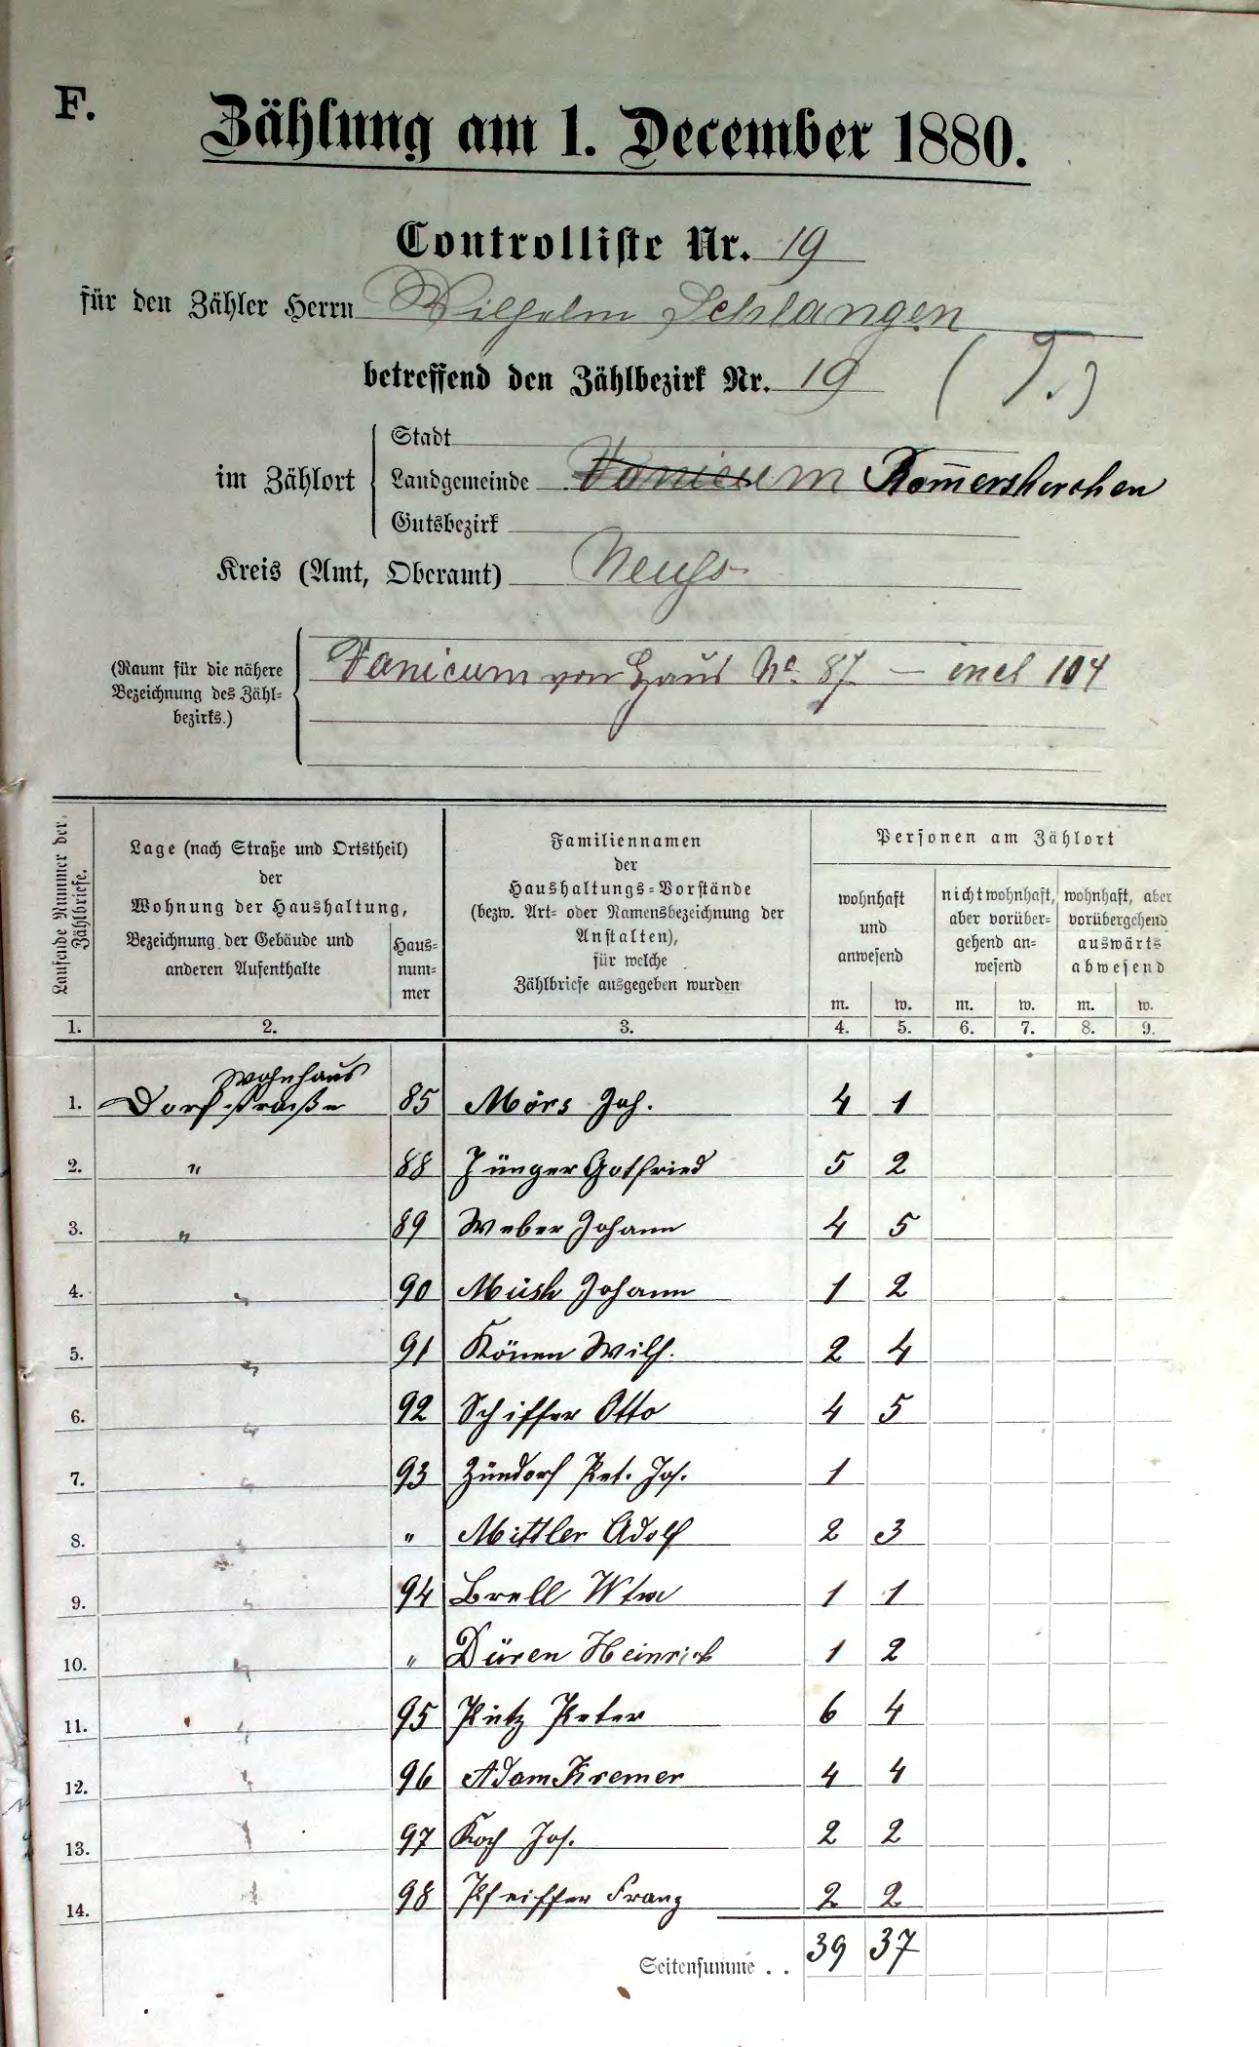 F.
Zählung am 1. December 1880.
Controlliste Nr. 19
für den Zähler Herrn Wilhelm Schlangen
betreffend den Zählbezirk Nr. 19 (T.)
im Zählort
Stadt
Landgemeinde Vanicum Rom̅erskerchen
Gutsbezirk
Kreis (Amt, Oberamt) Neuss
(Raum für die nähere Bezeichnung des Zähl-
bezirks.)
Vanicum von Haus No. 87 — incl 104
Laufende Nummer der Zählbriefe.
Lage (nach Straße und Ortstheil)
der
Wohnung der Haushaltung,
Bezeichnung der Gebäude und
anderen Aufenthalte
Haus-
num-
mer
Familiennamen
der
Haushaltungs-Vorstände
(bezw. Art- oder Namensbezeichnung der
Anstalten),
für welche
Zählbriefe ausgegeben wurden
Personen am Zählort
wohnhaft
und
anwesend
nicht wohnhaft,
aber vorüber-
gehend an-
wesend
wohnhaft, aber
vorübergehend
auswärts
abwesend
m. w. m. w. m. w.
1. 2. 3. 4. 5. 6. 7. 8. 9.
Wohnhaus
1. Dorfstraße 85 Mörs Joh. 4 1
2. " 88 Jünger Gotfried 5 2
3. " 89 Weber Johann 4 5
4. " 90 Müsh Johann 1 2
5. " 91 Könen Wilh. 2 4
6. " 92 Schiffer Otto 4 5
7. " 93 Zündorf Pet. Jos. 1
8. " " Mittler Adolf 2 3
9. " 94 Brell Wtw 1 1
10. " " Düren Heinrich 1 2
11. " 95 Pütz Peter 6 4
12. " 96 Adam Kremer 4 4
13. " 97 Koch Jos. 2 2
14. " 98 Pfeiffer Franz 2 2
Seitensumme . . 39 37